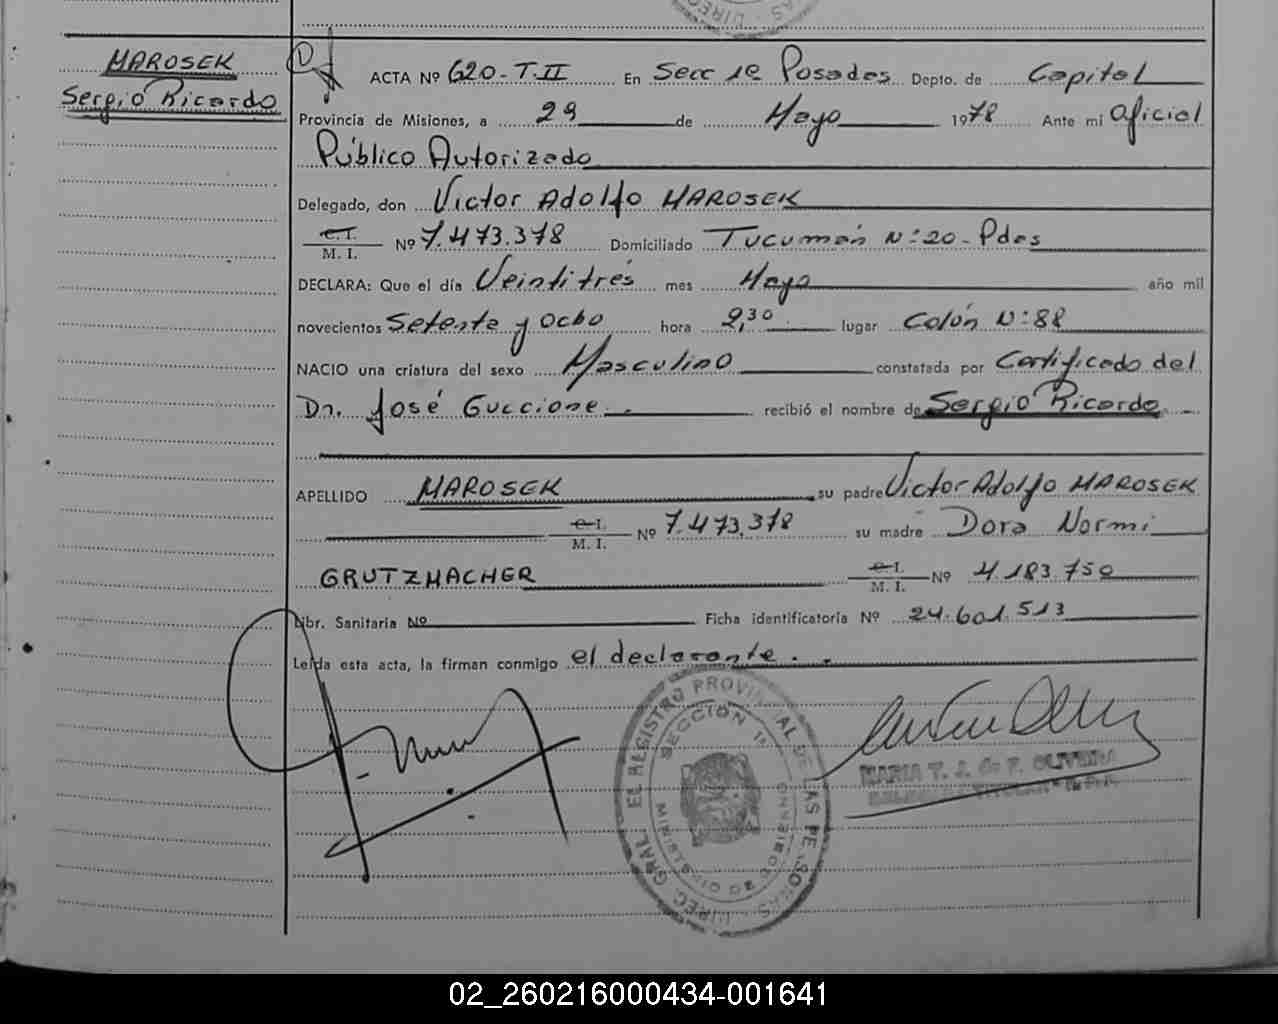 MAROSEK
Sergio Ricardo
ACTA Nº 620-T.II En Secc 1ª Posadas Depto. de Capital
Provincia de Misiones, a 29 de Mayo 1978 Ante mi Oficial
Público Autorizado
Delegado, don Victor Adolfo MAROSEK
C.I.
M. I. Nº 7.473.378 Domiciliado Tucumán Nº:20-Pdas
DECLARA: Que el día Veintitrés mes Mayo año mil
novecientos Setenta y ocho hora 2,30 lugar Colón Nº:88
NACIO una criatura del sexo Masculino constatada por Certificado del
Dr. José Guccione. recibió el nombre de Sergio Ricardo
APELLIDO MAROSEK su padre Victor Adolfo MAROSEK
C.I.
M. I. Nº 7.473.378 su madre Dora Normi
GRUTZMACHER C.I.
M. I. Nº 4.183.750
Libr. Sanitaria Nº Ficha identificatoria Nº 24.601.513
Leída esta acta, la firman conmigo el declarante.
DIREC. GRAL. EL REGISTRO PROVINCIAL DE LAS PERSONAS
SECCION 1ª
MINISTERIO DE GOBIERNO
MARIA T. J. de F. OLIVEIRA
02_260216000434-001641